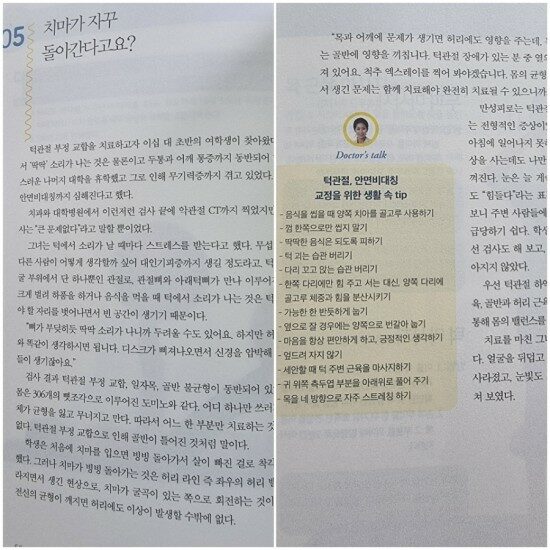 05
치마가 자꾸
돌아간다고요?
턱관절 부정 교합을 치료하고자 이십 대 초반의 여학생이 찾아왔다
서 '딱딱' 소리가 나는 것은 물론이고 두통과 어깨 통증까지 동반되어
스러운 나머지 대학을 휴학했고 그로 인해 무기력증까지 겪고 있었다.
안면비대칭까지 심해진다고 했다.
치과와 대학병원에서 이런저런 검사 끝에 악관절 CT까지 찍었지만
사는 "큰 문제없다"라고 말할 뿐이었다.
그녀는 턱에서 소리가 날 때마다 스트레스를 받는다고 했다. 무섭
다른 사람이 어떻게 생각할까 싶어 대인기피증까지 생길 정도라고.
굴 부위에서 단 하나뿐인 관절로, 관절뼈와 아래턱뼈가 만나 이루어
크게 벌려 하품을 하거나 음식을 먹을 때 턱에서 소리가 나는 것은 턱
야 할 자리를 벗어나면서 빈 공간이 생기기 때문이다.
"뼈가 부딪히듯 딱딱 소리가 나니까 두려울 수도 있어요. 하지만 허
와 똑같이 생각하시면 됩니다. 디스크가 삐져나오면서 신경을 압박해
들이 생기잖아요."
검사 결과 턱관절 부정 교합, 일자목, 골반 불균형이 동반되어 있
몸은 306개의 뼛조각으로 이루어진 도미노와 같다. 어디 하나만 쓰러
체가 균형을 잃고 무너지고 만다. 따라서 어느 한 부분만 치료하는 것
없다. 턱관절 부정 교합으로 인해 골반이 틀어진 것처럼 말이다.
학생은 처음에 치마를 입으면 빙빙 돌아가서 살이 빠진 걸로 착각
했다. 그러나 치마가 빙빙 돌아가는 것은 허리 라인 즉 좌우의 허리
라지면서 생긴 현상으로, 치마가 굴곡이 있는 쪽으로 회전하는 것이
전신의 균형이 깨지면 허리에도 이상이 발생할 수밖에 없다.
"목과 어깨에 문제가 생기면 허리에도 영향을 주는데,
는 골반에 영향을 끼칩니다. 턱관절 장애가 있는 분 중 열에
져 있어요. 척추 엑스레이를 찍어 봐야겠습니다. 몸의 균형
서 생긴 문제는 함께 치료해야 완전히 치료될 수 있으니까
만성피로는 턱관절
는 전형적인 증상이
아침에 일어나지 못하
상을 사는데도 나만
껴진다. 눈은 늘 게
도 "힘들다"라는 표
보니 주변 사람들에
급당하기 쉽다. 학생
선 검사도 해 보고,
아지지 않았다.
우선 턱관절 하악
육, 골반과 허리 근육
통해 몸의 밸런스를
치료를 마친 그녀
다. 얼굴을 뒤덮고
사라졌고, 눈빛도
쳐 보였다.
Doctor's talk
턱관절, 안면비대칭
교정을 위한 생활 속 tip
- 음식을 씹을 때 양쪽 치아를 골고루 사용하기
- 껌 한쪽으로만 씹지 말기
- 딱딱한 음식은 되도록 피하기
- 턱 괴는 습관 버리기
- 다리 꼬고 앉는 습관 버리기
- 한쪽 다리에만 힘 주고 서는 대신, 양쪽 다리에
골고루 체중과 힘을 분산시키기
- 가능한 한 반듯하게 눕기
- 옆으로 잘 경우에는 양쪽으로 번갈아 눕기
- 마음을 항상 편안하게 하고, 긍정적인 생각하기
- 엎드려 자지 않기
- 세안할 때 턱 주변 근육을 마사지하기
- 귀 위쪽 측두엽 부분을 아래위로 풀어 주기
- 목을 네 방향으로 자주 스트레칭 하기